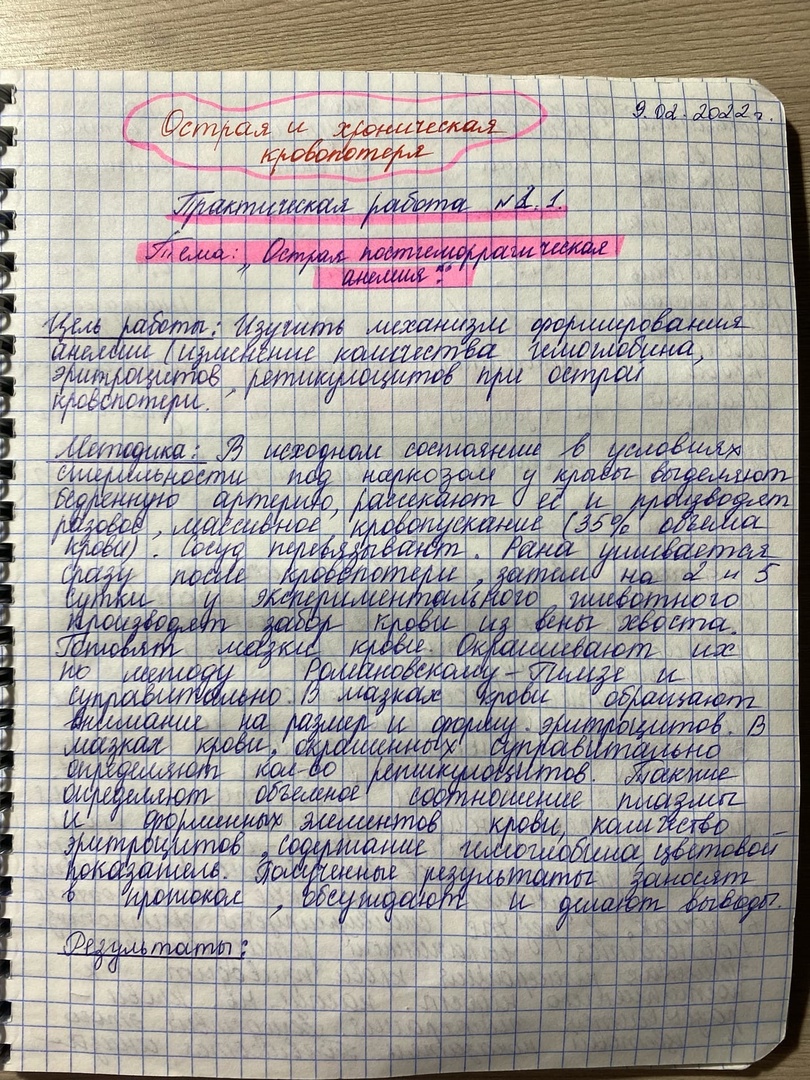 9.02.2022г.
Острая и хроническая
кровопотеря
Практическая работа №2.1.
Тема: „Острая постгеморрагическая
анемия".
Цель работы: Изучить механизм формирования
анемии (изменение количества гемоглобина,
эритроцитов, ретикулоцитов при острой
кровопотери.
Методика: В исходном состояние в условиях
стерильности под наркозом у крысы выделяют
бедренную артерию, рассекают её и производят
разовое, массивное кровопускание (35% объема
крови). Сосуд перевязывают. Рана ушивается
сразу после кровопотери, затем на 2 и 5
сутки у экспериментального животного
производят забор крови из вены хвоста.
Готовят мазки крови. Окрашивают их
по методу Романовскому-Гимзе и
суправитально. В мазках крови обращают
внимание на размер и форму эритроцитов. В
мазках крови, окрашенных суправитально
определяют кол-во ретикулоцитов. Также
определяют объемное соотношение плазмы
и форменных элементов крови, количество
эритроцитов, содержание гемоглобина, цветовой
показатель. Полученные результаты заносят
в протокол, обсуждают и делают выводы.
Результаты: